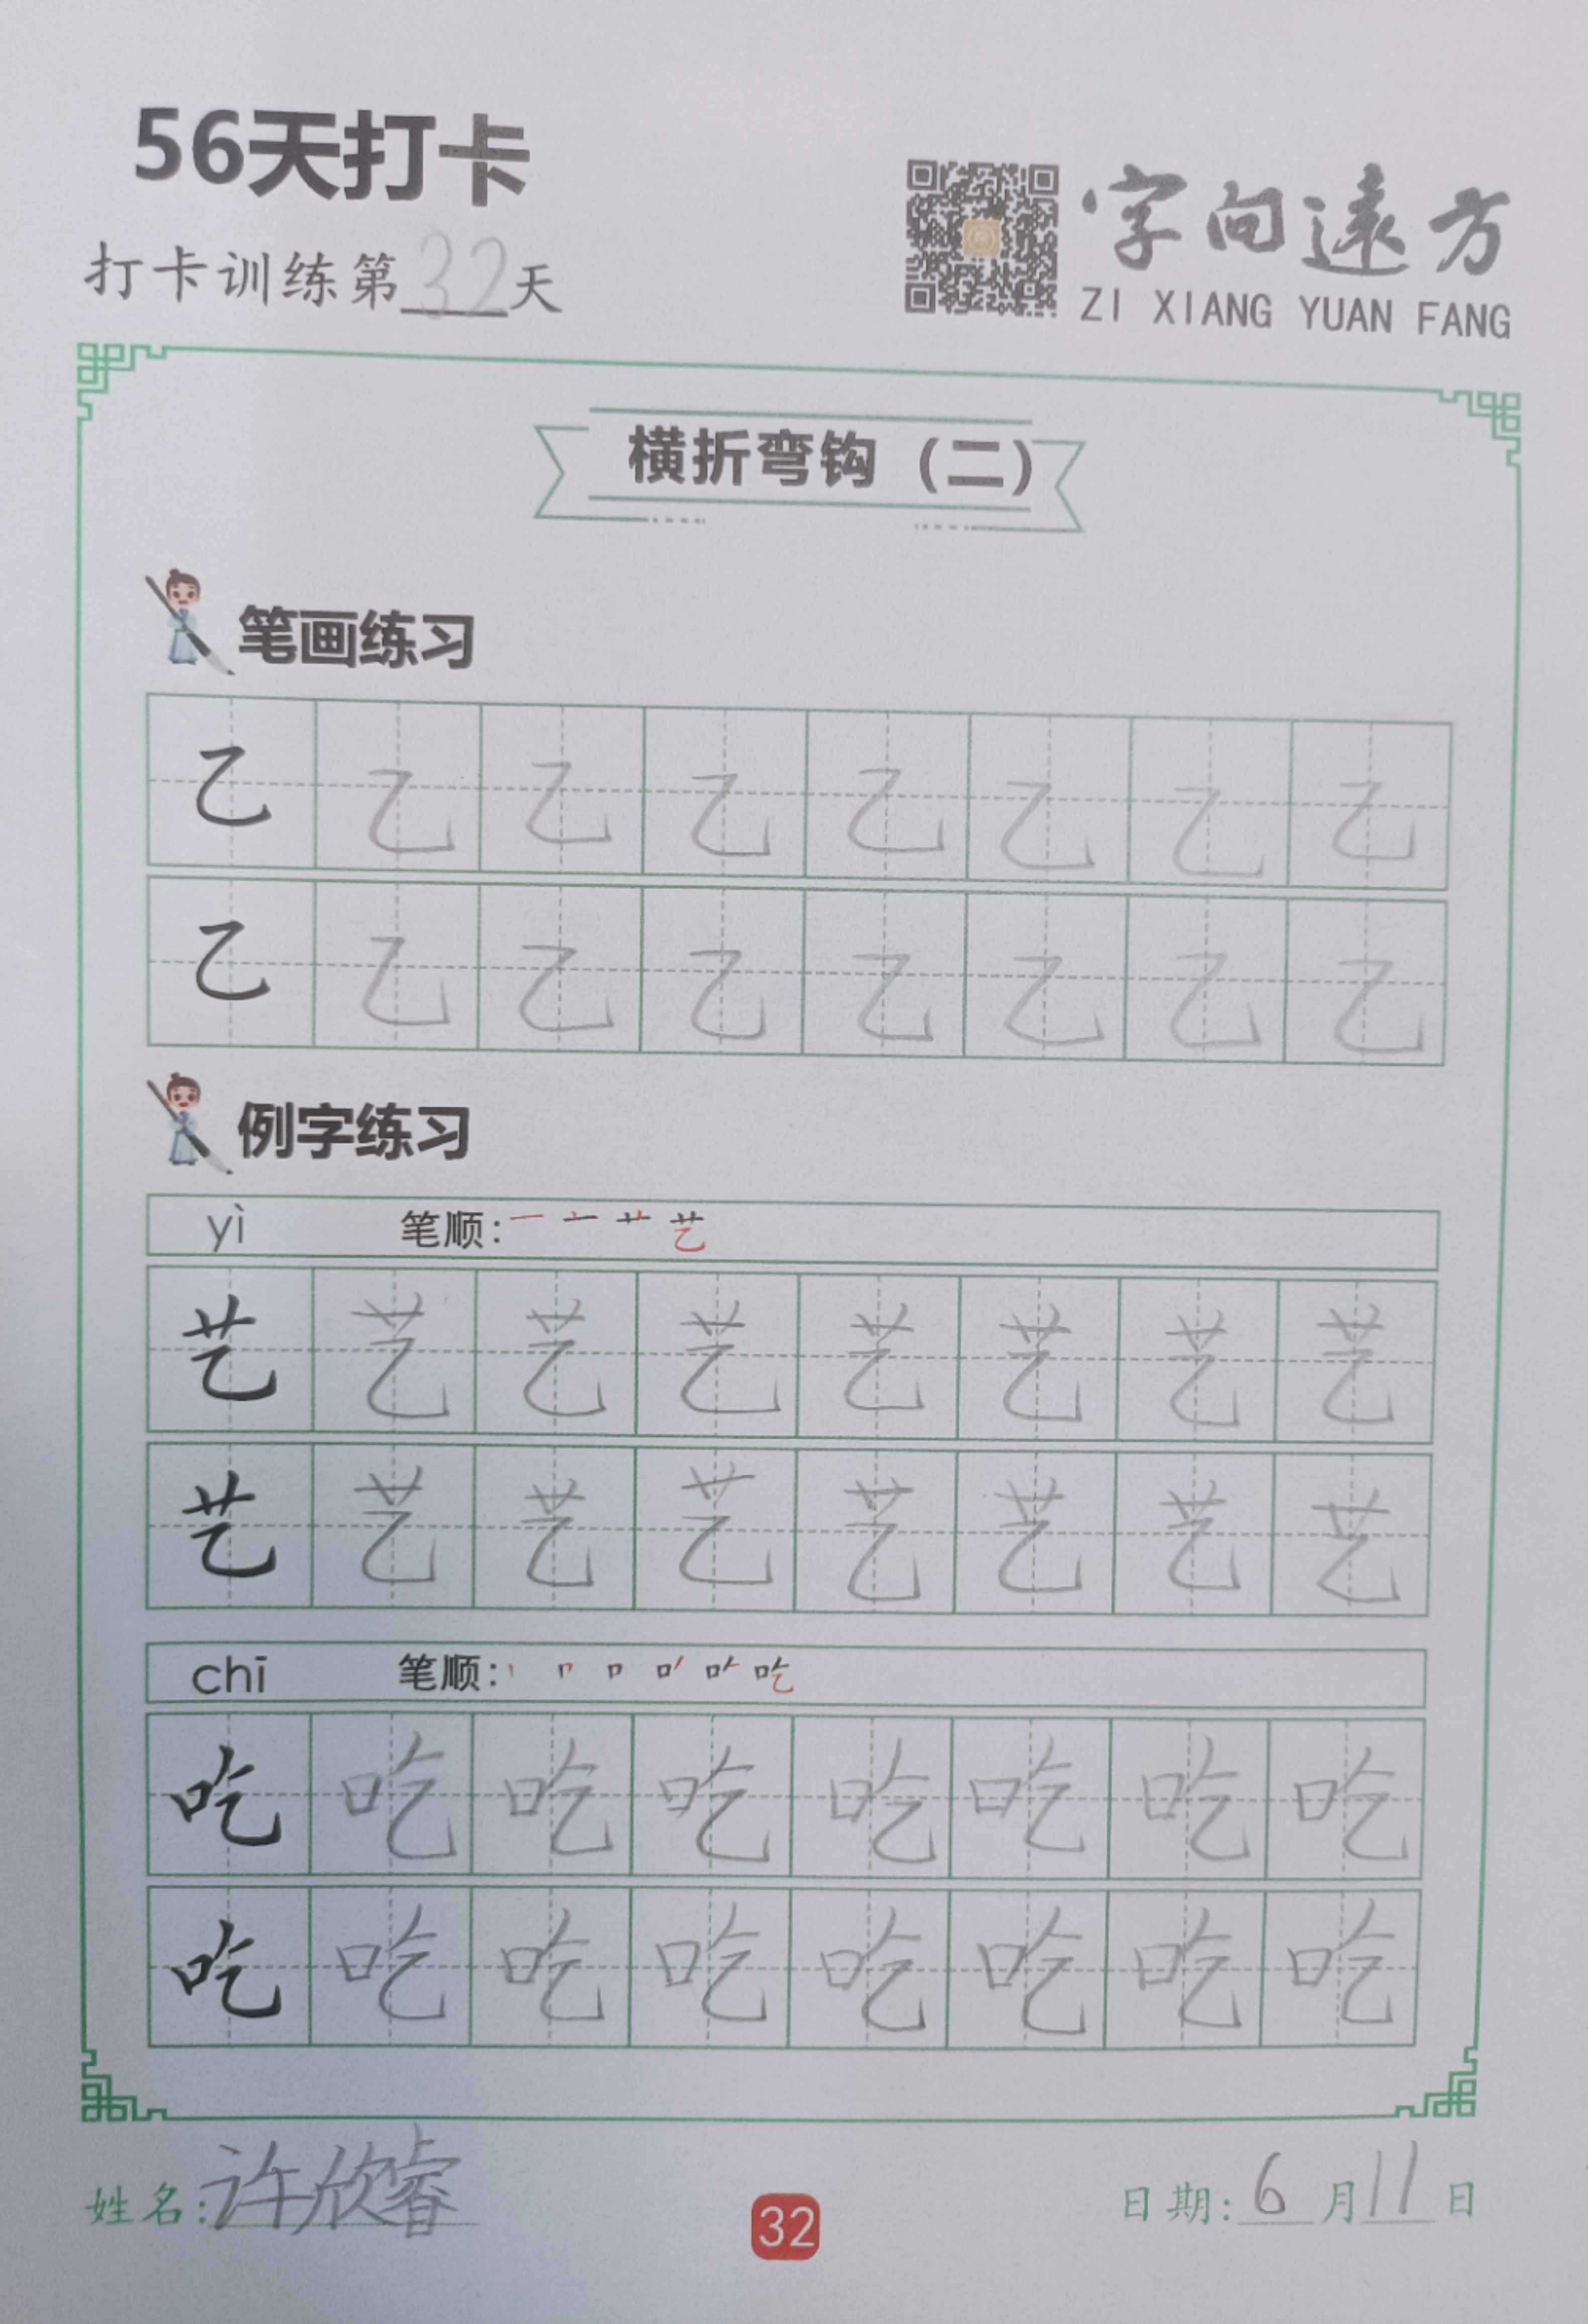 56天打卡
打卡训练第32天
字向遠方
ZI XIANG YUAN FANG
横折弯钩（二）
笔画练习
乙 乙 乙 乙 乙 乙 乙 乙
乙 乙 乙 乙 乙 乙 乙 乙
例字练习
yì 笔顺: 一 十 艹 艺
艺 艺 艺 艺 艺 艺 艺 艺
艺 艺 艺 艺 艺 艺 艺 艺
chī 笔顺: 吃
吃 吃 吃 吃 吃 吃 吃 吃
吃 吃 吃 吃 吃 吃 吃 吃
姓名:许欣睿
32
日期:6月11日